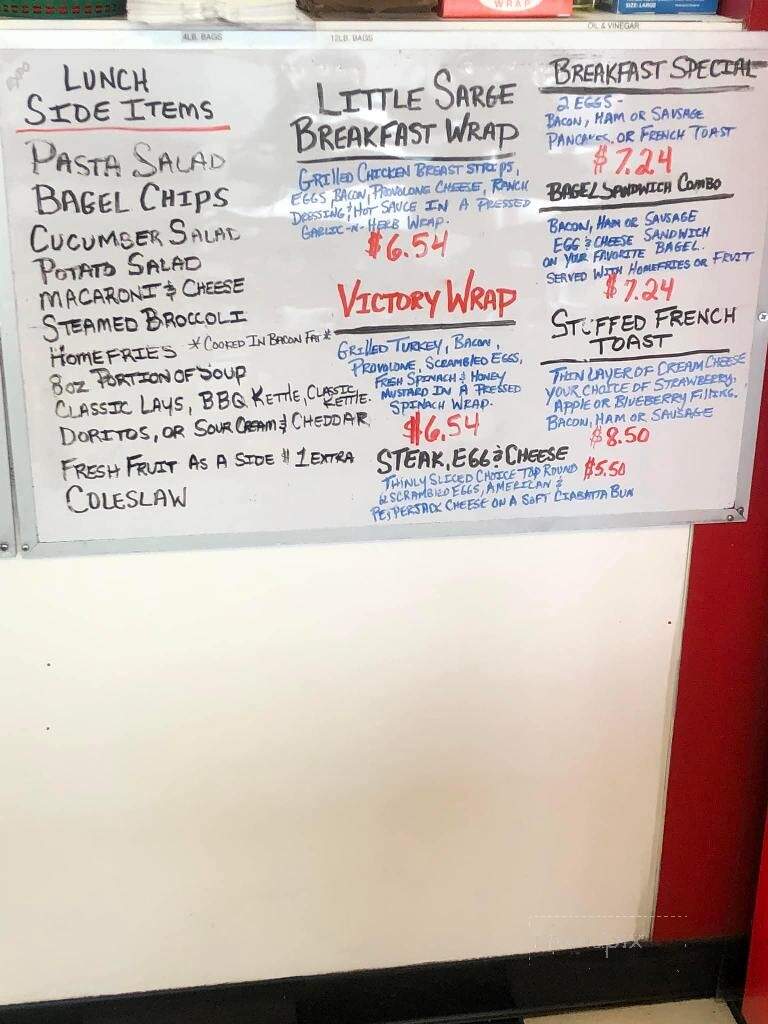 WRAP
SIZE: LARGE
4LB. BAGS
12LB. BAGS
OIL & VINEGAR
LUNCH
SIDE ITEMS
PASTA SALAD
BAGEL CHIPS
CUCUMBER SALAD
POTATO SALAD
MACARONI & CHEESE
STEAMED BROCCOLI
HOMEFRIES *COOKED IN BACON FAT*
8oz PORTION OF SOUP
CLASSIC LAYS, BBQ KETTLE, CLASSIC KETTLE.
DORITOS, OR SOUR CREAM & CHEDDAR
FRESH FRUIT AS A SIDE $1 EXTRA
COLESLAW
LITTLE SARGE
BREAKFAST WRAP
GRILLED CHICKEN BREAST STRIPS,
EGGS, BACON, PROVOLONE CHEESE, RANCH
DRESSING & HOT SAUCE IN A PRESSED
GARLIC-N-HERB WRAP.
$6.54
VICTORY WRAP
GRILLED TURKEY, BACON,
PROVOLONE, SCRAMBLED EGGS,
FRESH SPINACH & HONEY
MUSTARD IN A PRESSED
SPINACH WRAP.
$6.54
STEAK, EGG & CHEESE
THINLY SLICED CHOICE TOP ROUND $5.50
2 SCRAMBLED EGGS, AMERICAN &
PEPPERJACK CHEESE ON A SOFT CIABATTA BUN
BREAKFAST SPECIAL
2 EGGS -
BACON, HAM OR SAUSAGE
PANCAKES, OR FRENCH TOAST
$7.24
BAGEL SANDWICH COMBO
BACON, HAM OR SAUSAGE
EGG & CHEESE SANDWICH
ON YOUR FAVORITE BAGEL.
SERVED WITH HOMEFRIES OR FRUIT
$7.24
STUFFED FRENCH
TOAST
THIN LAYER OF CREAM CHEESE
YOUR CHOICE OF STRAWBERRY,
APPLE OR BLUEBERRY FILLING.
BACON, HAM OR SAUSAGE
$8.50